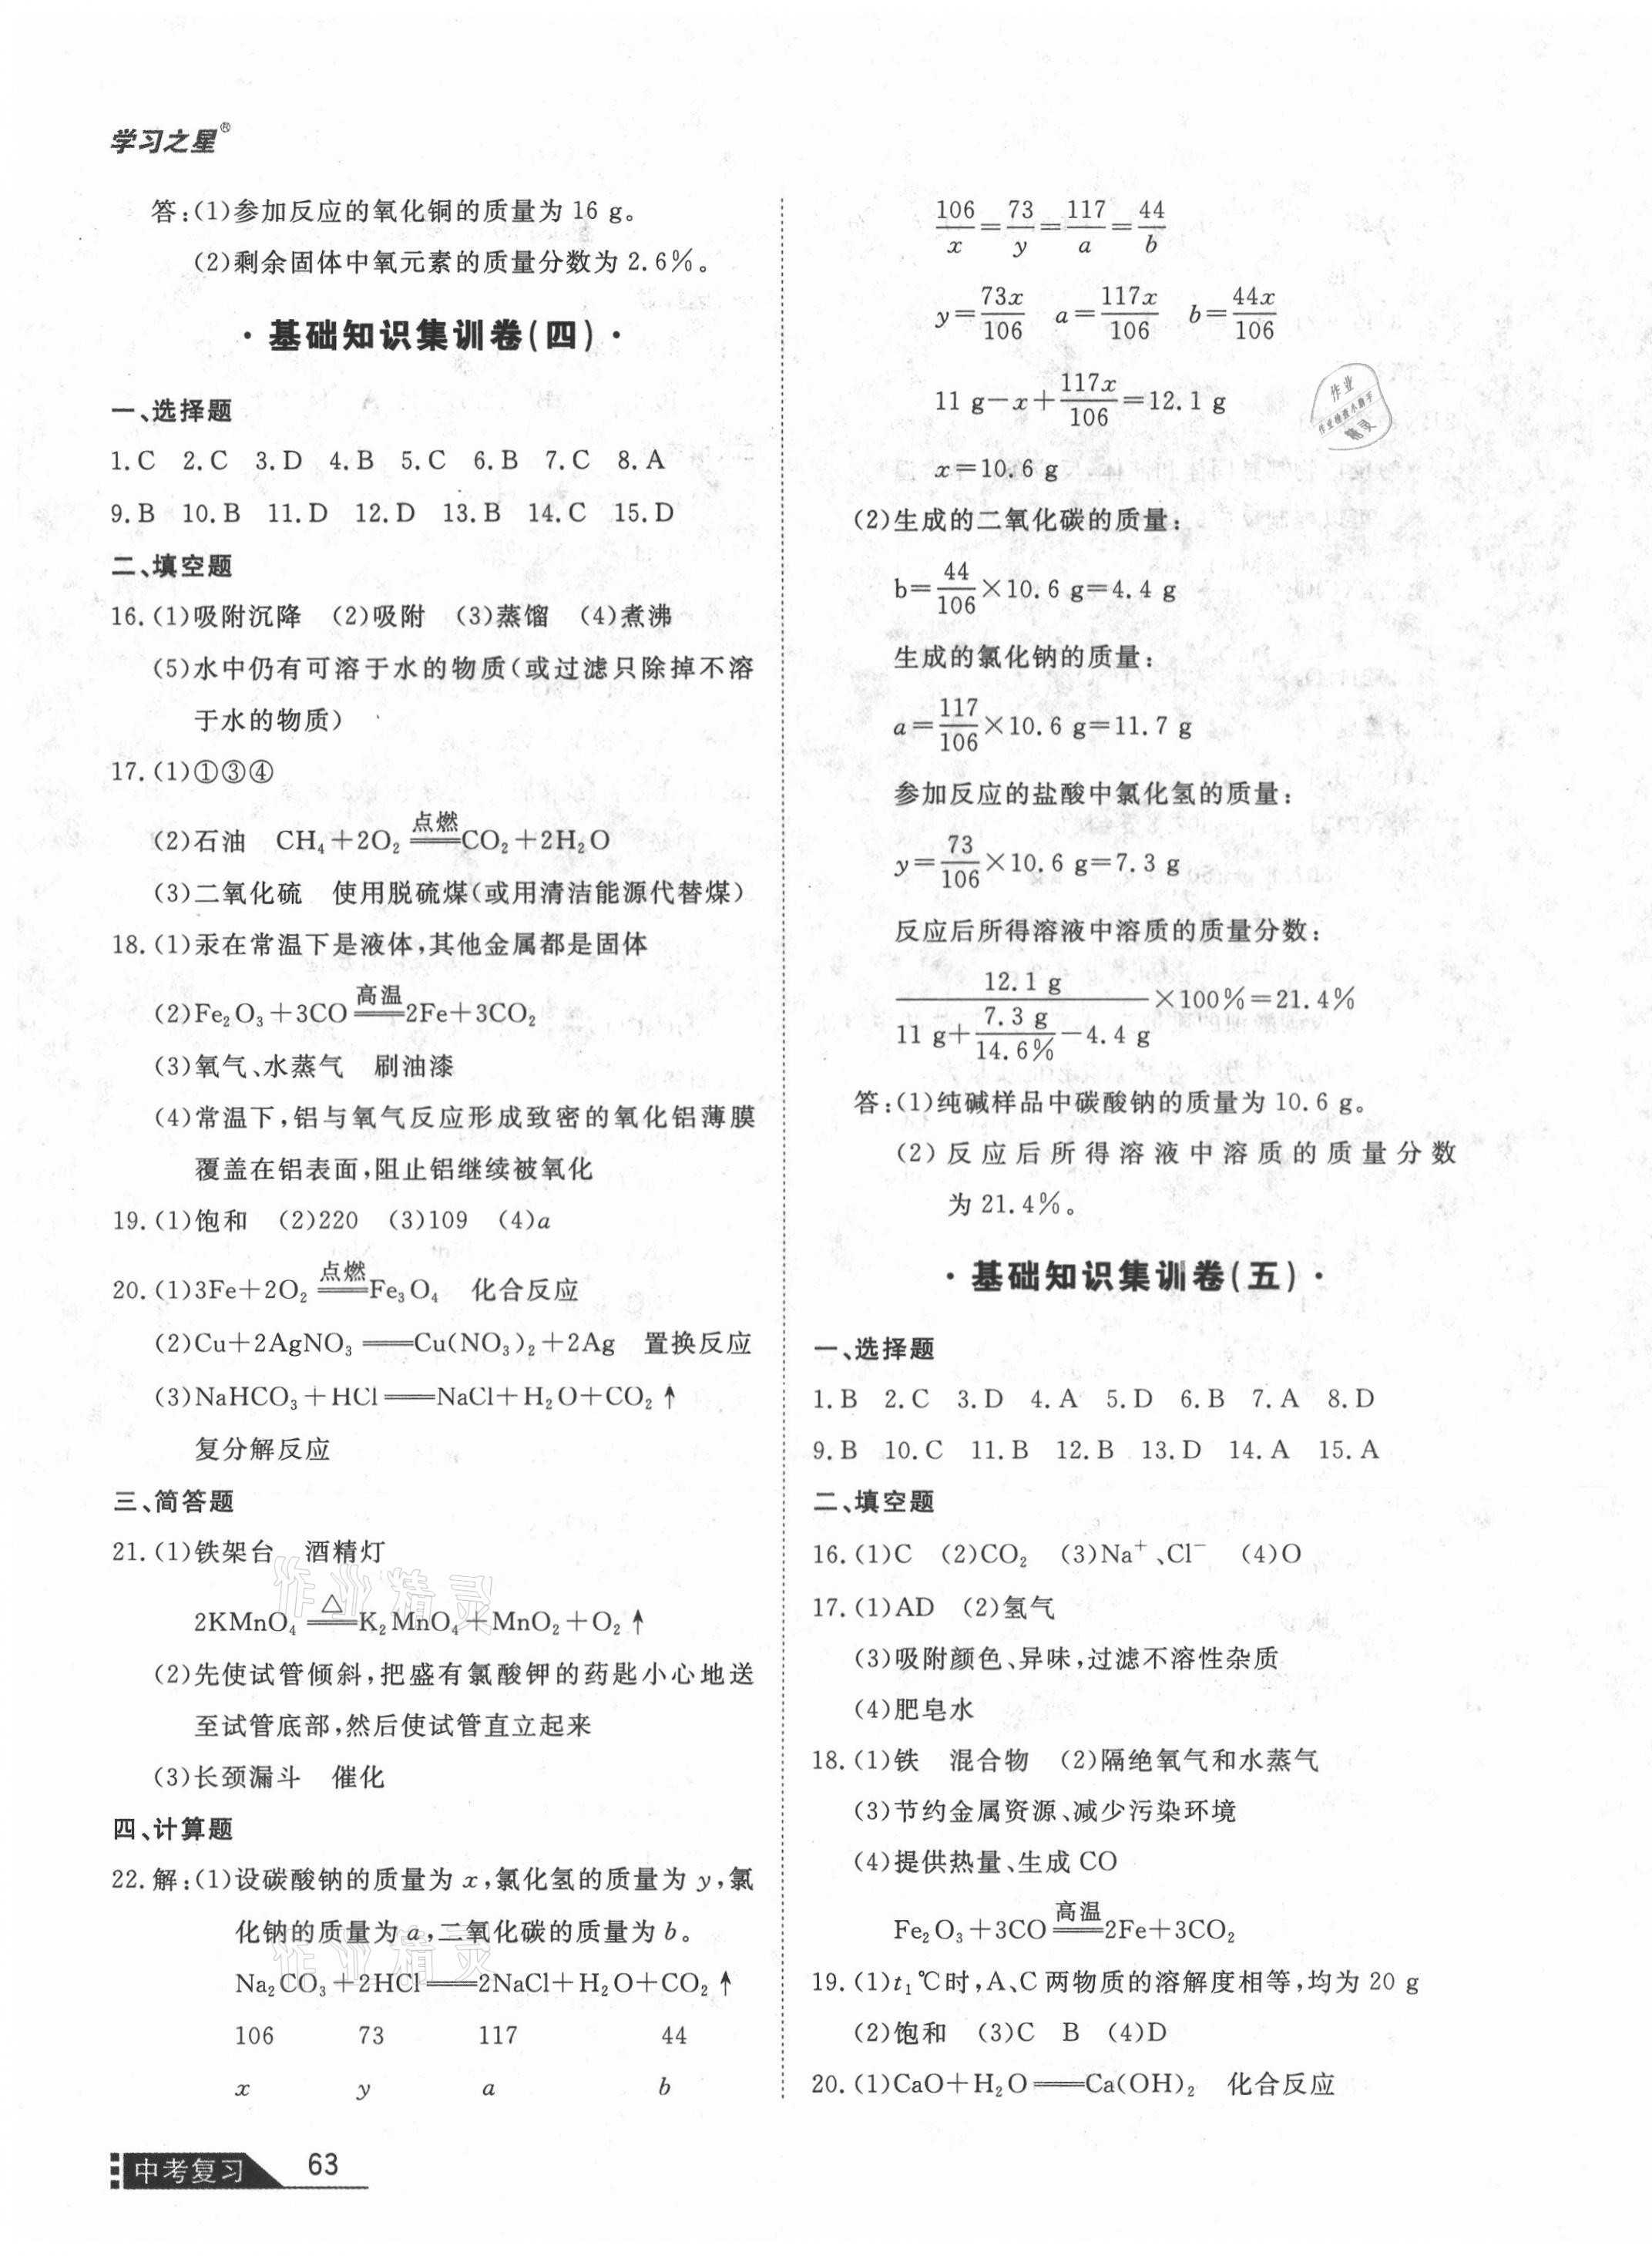 学习之星®
答:(1)参加反应的氧化铜的质量为 16 g。
(2)剩余固体中氧元素的质量分数为 2.6%。
·基础知识集训卷(四)·
一、选择题
1. C 2. C 3. D 4. B 5. C 6. B 7. C 8. A
9. B 10. B 11. D 12. D 13. B 14. C 15. D
二、填空题
16. (1)吸附沉降 (2)吸附 (3)蒸馏 (4)煮沸
(5)水中仍有可溶于水的物质(或过滤只除掉不溶
于水的物质)
17. (1)①③④
(2)石油 CH₄+2O₂ ══点燃══ CO₂+2H₂O
(3)二氧化硫 使用脱硫煤(或用清洁能源代替煤)
18. (1)汞在常温下是液体,其他金属都是固体
(2)Fe₂O₃+3CO ══高温══ 2Fe+3CO₂
(3)氧气、水蒸气 刷油漆
(4)常温下,铝与氧气反应形成致密的氧化铝薄膜
覆盖在铝表面,阻止铝继续被氧化
19. (1)饱和 (2)220 (3)109 (4)a
20. (1)3Fe+2O₂ ══点燃══ Fe₃O₄ 化合反应
(2)Cu+2AgNO₃ ══ Cu(NO₃)₂+2Ag 置换反应
(3)NaHCO₃+HCl ══ NaCl+H₂O+CO₂↑
复分解反应
三、简答题
21. (1)铁架台 酒精灯
2KMnO₄ ══△══ K₂MnO₄+MnO₂+O₂↑
(2)先使试管倾斜,把盛有氯酸钾的药匙小心地送
至试管底部,然后使试管直立起来
(3)长颈漏斗 催化
四、计算题
22. 解:(1)设碳酸钠的质量为 x,氯化氢的质量为 y,氯
化钠的质量为 a,二氧化碳的质量为 b。
Na₂CO₃+2HCl ══ 2NaCl+H₂O+CO₂↑
106 73 117 44
x y a b
106/x=73/y=117/a=44/b
y=73x/106 a=117x/106 b=44x/106
11 g−x+117x/106=12.1 g
x=10.6 g
(2)生成的二氧化碳的质量:
b=44/106×10.6 g=4.4 g
生成的氯化钠的质量:
a=117/106×10.6 g=11.7 g
参加反应的盐酸中氯化氢的质量:
y=73/106×10.6 g=7.3 g
反应后所得溶液中溶质的质量分数:
12.1 g/(11 g+7.3 g/14.6%−4.4 g)×100%=21.4%
答:(1)纯碱样品中碳酸钠的质量为 10.6 g。
(2)反应后所得溶液中溶质的质量分数
为 21.4%。
·基础知识集训卷(五)·
一、选择题
1. B 2. C 3. D 4. A 5. D 6. B 7. A 8. D
9. B 10. C 11. B 12. B 13. D 14. A 15. A
二、填空题
16. (1)C (2)CO₂ (3)Na⁺、Cl⁻ (4)O
17. (1)AD (2)氢气
(3)吸附颜色、异味,过滤不溶性杂质
(4)肥皂水
18. (1)铁 混合物 (2)隔绝氧气和水蒸气
(3)节约金属资源、减少污染环境
(4)提供热量、生成 CO
Fe₂O₃+3CO ══高温══ 2Fe+3CO₂
19. (1)t₁℃时,A、C 两物质的溶解度相等,均为 20 g
(2)饱和 (3)C B (4)D
20. (1)CaO+H₂O ══ Ca(OH)₂ 化合反应
中考复习 63
作业精灵
作业精灵
作业
精灵